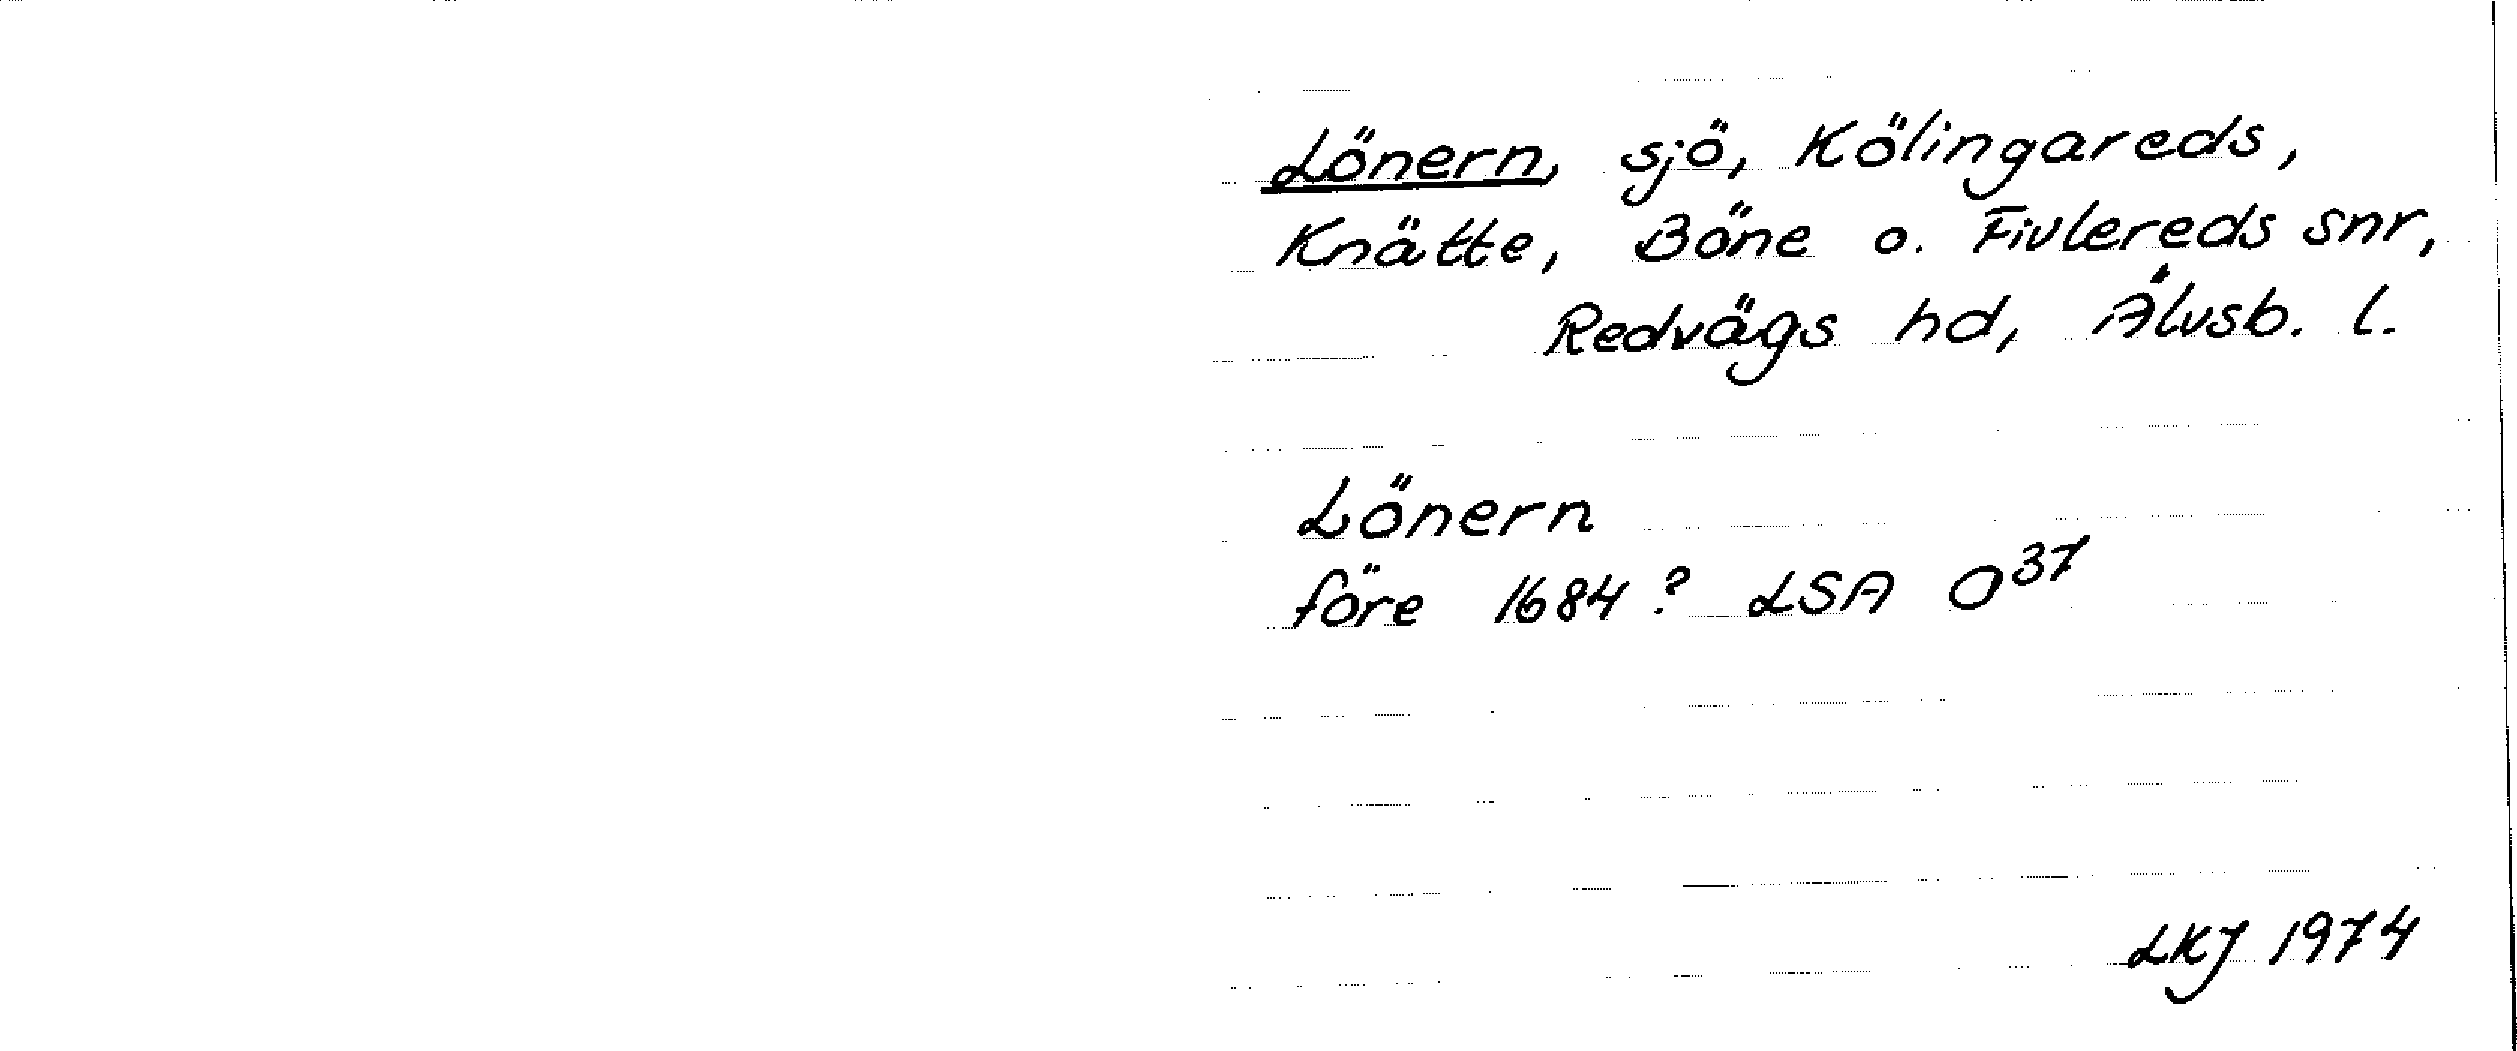 Lönern, sjö, Kölingareds,
Knätte, Böne o. Fivlereds snr,
Redvägs hd, Älvsb. l.
Lönern
före 1684? LSA O³⁷
LKJ 1974